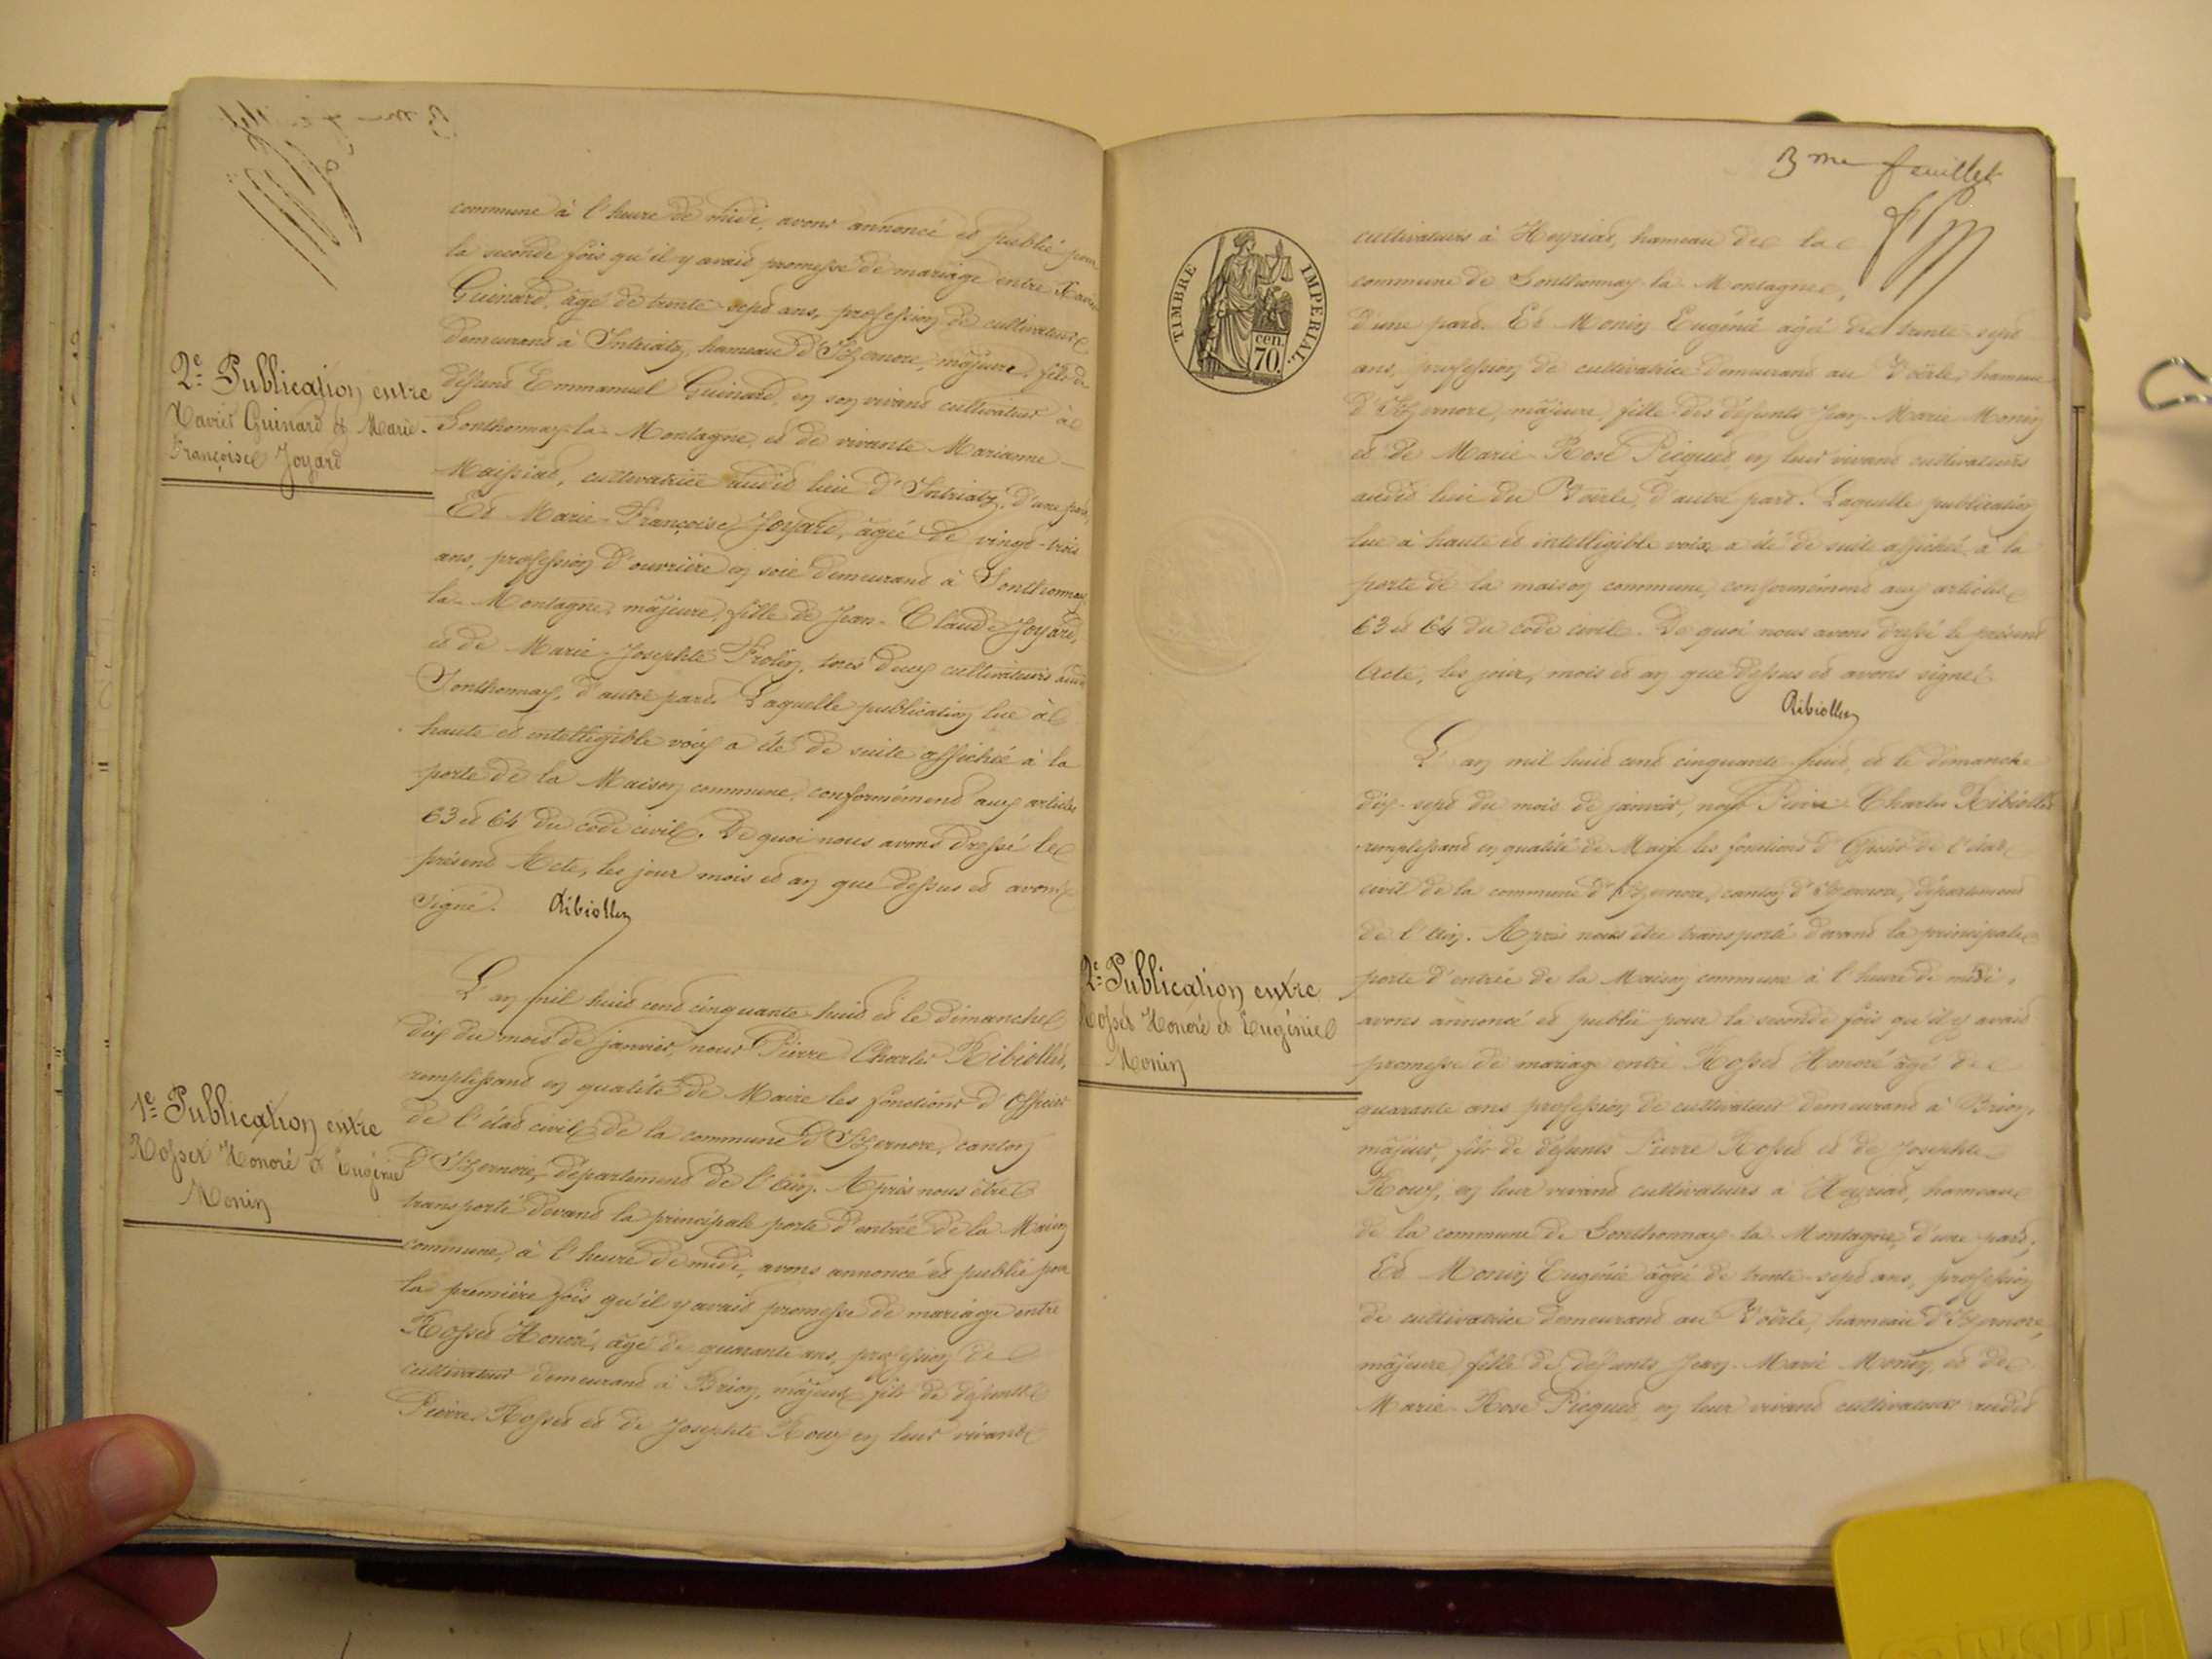 commune à l'heure de midi, avons annoncé et publié pour
la seconde fois qu'il y avait promesse de mariage entre Xavier
Guinard, âgé de trente-sept ans, profession de cultivateur
demeurant à Intriat, hameau d'Izernore, majeure, fils de
défunt Emmanuel Guinard, en son vivant cultivateur à
Sonthonnay-la-Montagne, et de vivante Marianne
Maissiat, cultivatrice audit lieu d'Intriat, d'une part,
Et Marie-Françoise Joyard, âgée de vingt-trois
ans, profession d'ouvrière en soie demeurant à Sonthonnay
la-Montagne, majeure, fille de Jean-Claude Joyard,
et de Marie-Josephte Frolin, tous deux cultivateurs audit
Sonthonnay, d'autre part. Laquelle publication lue à
haute et intelligible voix a été de suite affichée à la
porte de la Maison commune, conformément aux articles
63 et 64 du code civil. De quoi nous avons dressé le
présent Acte, les jour mois et an que dessus et avons
signé. Ribiollet
2e Publication entre
Xavier Guinard et Marie-
Françoise Joyard
L'an mil huit cent cinquante-huit et le dimanche
dix du mois de janvier, nous Pierre Charles Ribiollet,
remplissant en qualité de Maire les fonctions d'Officier
de l'état civil de la commune d'Izernore, canton
d'Izernore, département de l'Ain. Après nous être
transporté devant la principale porte d'entrée de la Maison
commune, à l'heure de midi, avons annoncé et publié pour
la première fois qu'il y avait promesse de mariage entre
Rosset Honoré, âgé de quarante ans, profession de
cultivateur demeurant à Brion, majeur, fils de défunts
Pierre Rosset et de Josephte Roux en leur vivant
1e Publication entre
Rosset Honoré et Eugénie
Monin
3me feuillet
TIMBRE IMPERIAL
cen.
70.
cultivateurs à Heyriat, hameau de la
commune de Sonthonnay-la-Montagne,
d'une part. Et Monin Eugénie âgée de trente-sept
ans, profession de cultivatrice demeurant au Voërle, hameau
d'Izernore, majeure, fille des défunts Jean-Marie Monin
et de Marie-Rose Picquet, en leur vivant cultivateurs
audit lieu du Voërle, d'autre part. Laquelle publication
lue à haute et intelligible voix, a été de suite affichée à la
porte de la maison commune, conformément aux articles
63 et 64 du code civil. De quoi nous avons dressé le présent
Acte, les jour, mois et an que dessus et avons signé
Ribiollet
L'an mil huit cent cinquante-huit, et le dimanche
dix-sept du mois de janvier, nous Pierre Charles Ribiollet
remplissant en qualité de Maire les fonctions d'Officier de l'état
civil de la commune d'Izernore, canton d'Izernore, département
de l'Ain. Après nous être transporté devant la principale
porte d'entrée de la Maison commune à l'heure de midi,
avons annoncé et publié pour la seconde fois qu'il y avait
promesse de mariage entre Rosset Honoré âgé de
quarante ans profession de cultivateur demeurant à Brion,
majeur, fils de défunts Pierre Rosset et de Josephte
Roux, en leur vivant cultivateurs à Heyriat, hameau
de la commune de Sonthonnay-la-Montagne, d'une part,
Et Monin Eugénie âgée de trente-sept ans, profession
de cultivatrice demeurant au Voërle, hameau d'Izernore,
majeure, fille de défunts Jean-Marie Monin et de
Marie-Rose Picquet en leur vivant cultivateurs audit
2e Publication entre
Rosset Honoré et Eugénie
Monin